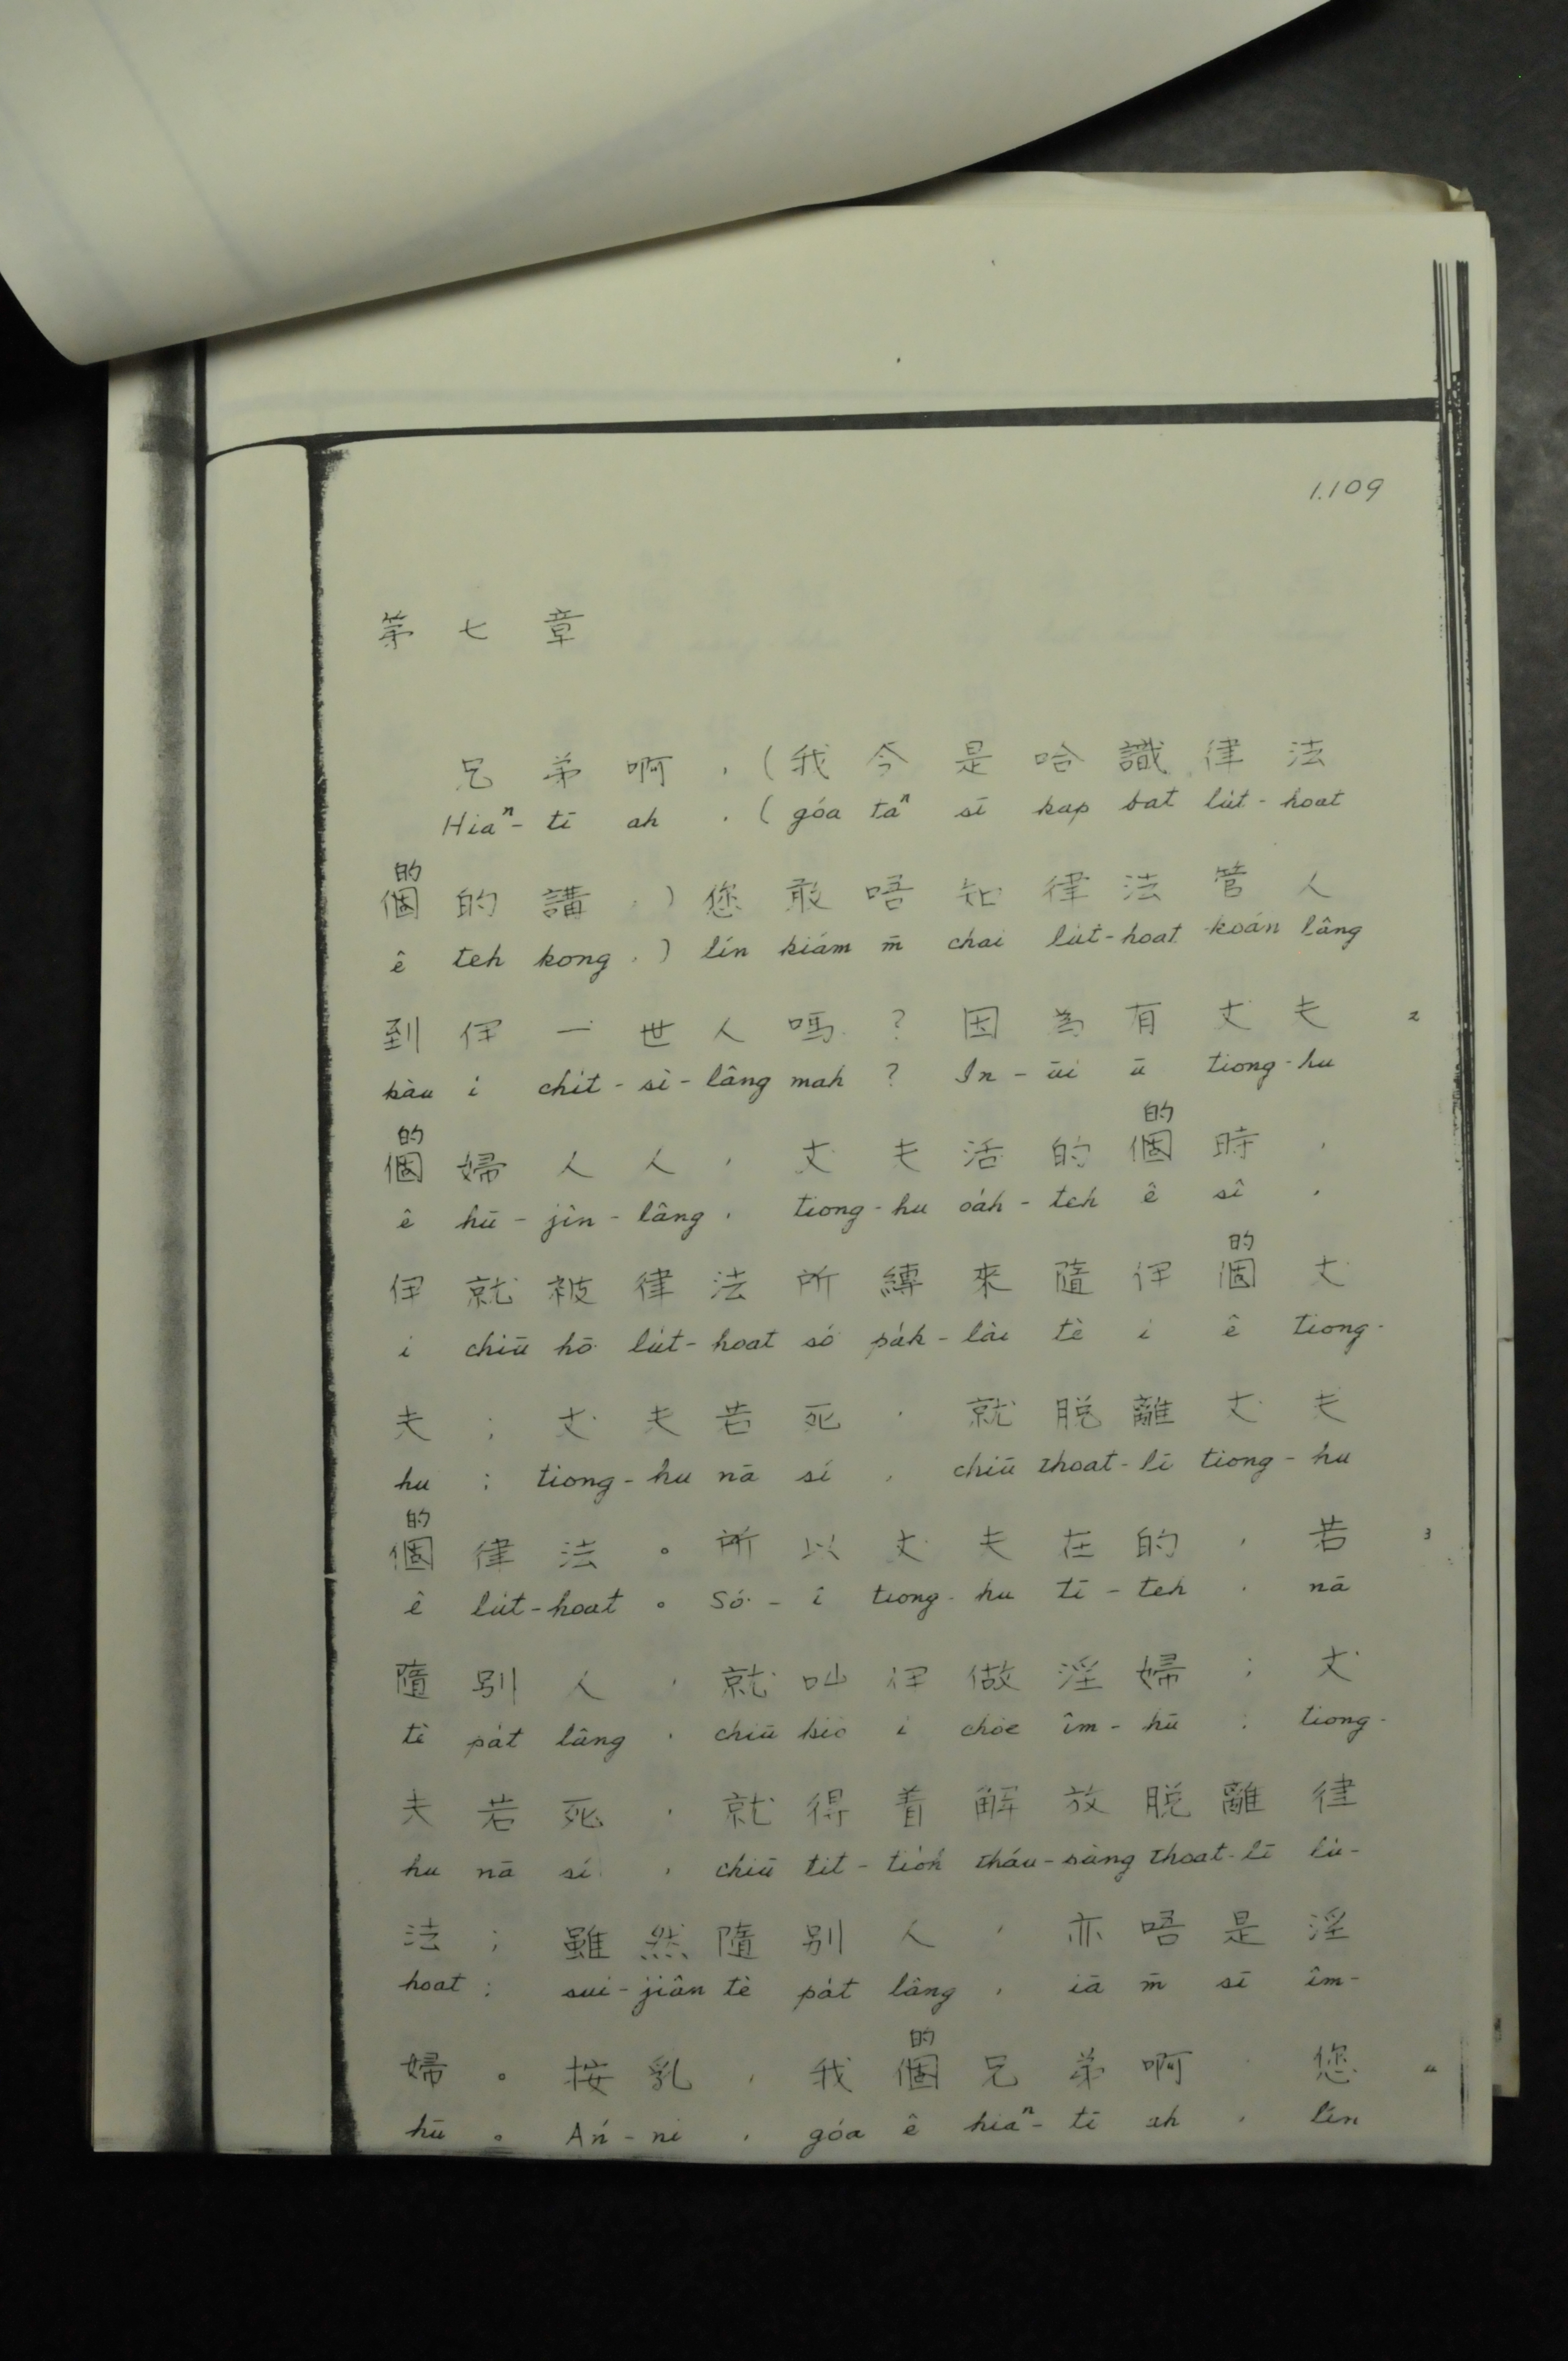 1.109
第七章
兄弟啊，(我今是哈識律法
Hiaⁿ-tī ah，(góa taⁿ sī kap bat lu̍t-hoat
的
個的講，)您敢唔知律法管人
ê teh kong，) lín kiám m̄ chai lu̍t-hoat koán lâng
到伊一世人嗎？因為有丈夫 2
kàu i chi̍t-sì-lâng mah？In-ūi ū tiong-hu
的 的
個婦人人，丈夫活的個時，
ê hū-jîn-lâng，tiong-hu oa̍h-teh ê sî，
的
伊就被律法所縛來隨伊個丈
i chiū hō͘ lu̍t-hoat só͘ pa̍k-lâi tè i ê tiong-
夫；丈夫若死，就脫離丈夫
hu；tiong-hu nā sí，chiū thoat-lī tiong-hu
的
個律法。所以丈夫在的，若 3
ê lu̍t-hoat。Só͘-í tiong-hu tī-teh，nā
隨別人，就叫伊做淫婦；丈
tè pa̍t lâng，chiū kiò i chòe îm-hū；tiong-
夫若死，就得着解放脫離律
hu nā sí，chiū tit-tio̍h tháu-pàng thoat-lī lu̍-
法；雖然隨別人，亦唔是淫
hoat；sui-jiân tè pa̍t lâng，iā m̄ sī îm-
的
婦。按乳，我個兄弟啊，您 4
hū。Án-ni，góa ê hiaⁿ-tī ah，lín